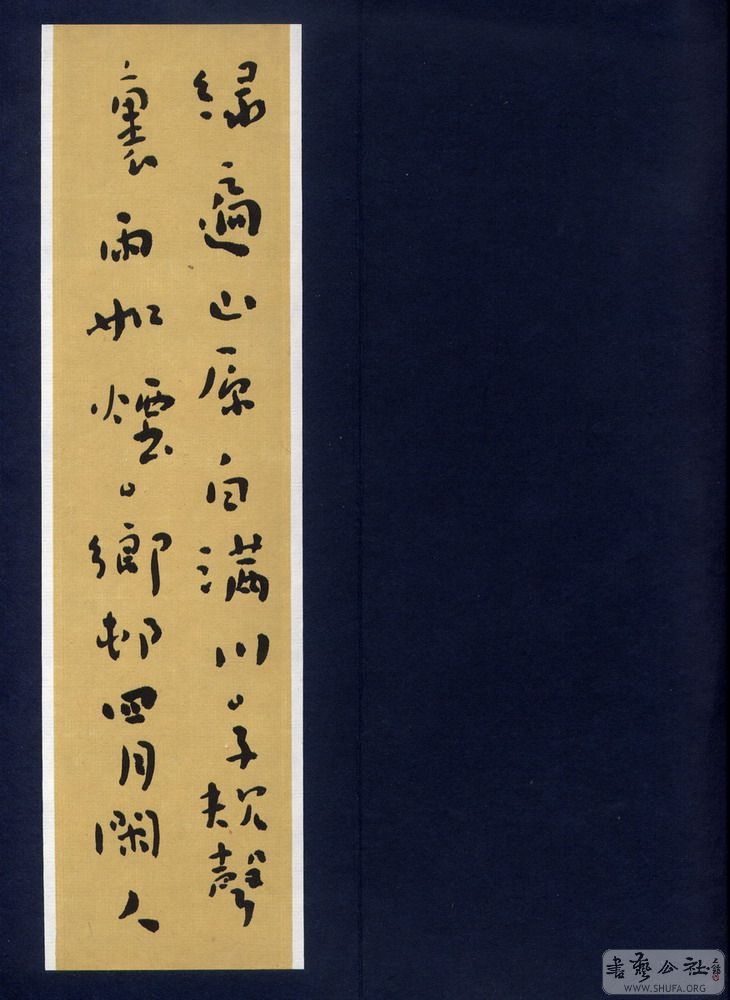 綠遍山原白滿川。子規聲
裏雨如煙。鄉邨四月閑人
書藝公社
WWW.SHUFA.ORG